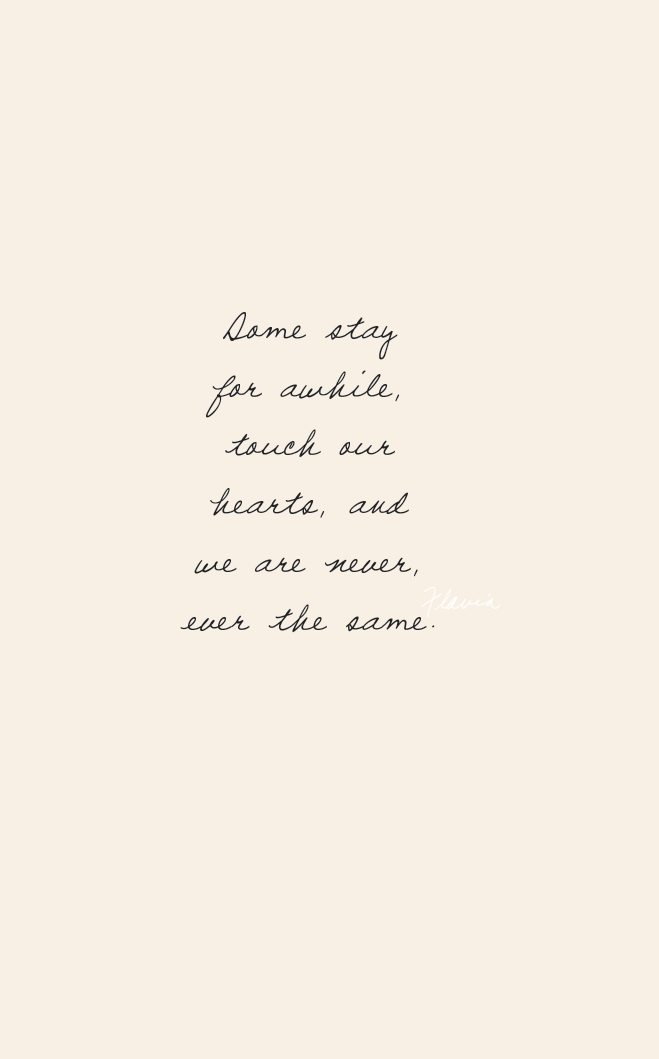 Some stay
for awhile,
touch our
hearts, and
we are never,
ever the same.
Flavia